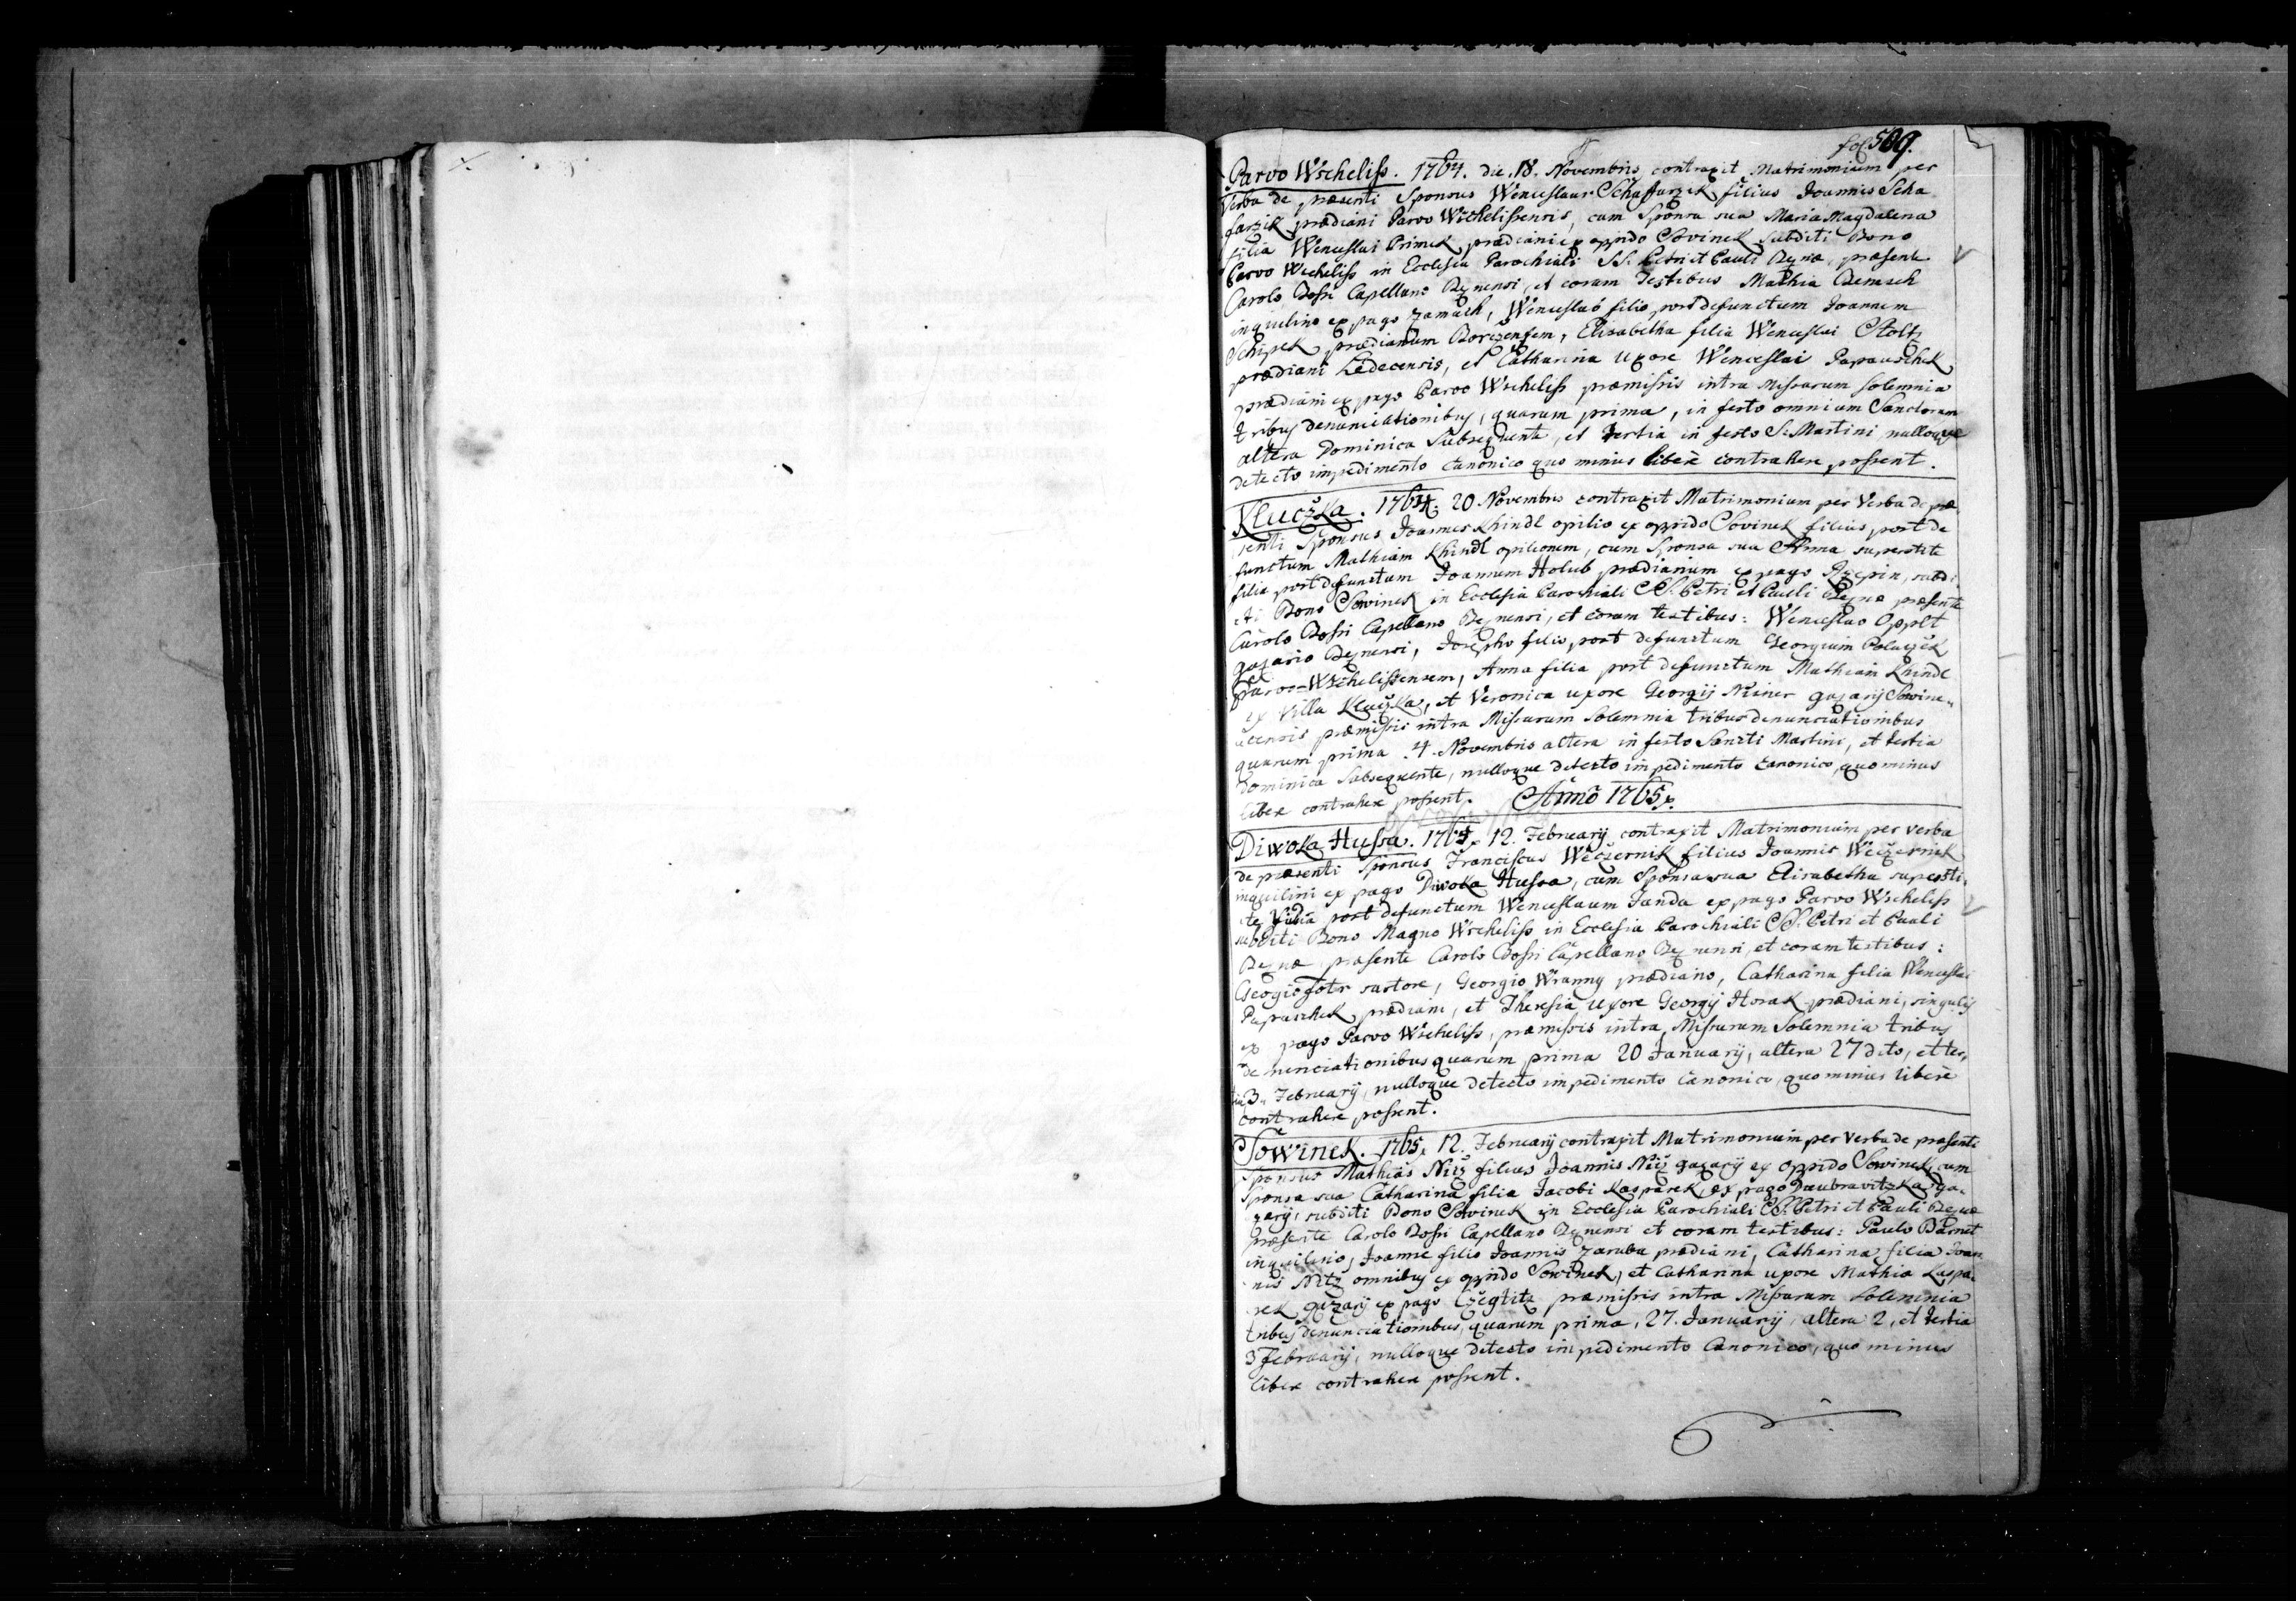 fol. 509.
Parvo Wscheliss. 1764. die. 18. Novembris contraxit Matrimonium per
Verba de præsenti Sponsus Wenceslaus Schaffarzik filius Joannis Scha
farzik prædiani Parvo Wschelissensis, cum Sponsa sua Maria Magdalena
filia Wenceslai Primek prædiani ex oppido Sovinek subditi Bono
Parvo Wscheliss in Ecclesia Parochiali SS. Petri et Pauli Beznæ, præsente
Carolo Bossi Capellano Beznensi, et coram Testibus Mathia
inquilino ex pago Zamach, Wenceslao filio post defunctum Joannem
Schipek prædianum Borczensem, Elisabetha filia Wenceslai Stoltz
prædiani Ledecensis, et Catharina uxore Wenceslai Papauschek
prædiani ex pago Parvo Wscheliss præmissis intra Missarum solemnia
tribus denunciationibus, quarum prima, in festo omnium Sanctorum
altera Dominica Subsequente, et tertia in festo S. Martini nulloque
detecto impedimento canonico quo minus liberè contrahere possent.
Kluczka. 1764. 20 Novembris contraxit Matrimonium per Verba de præ
senti Sponsus Joannes Khindl opilio ex oppido Sovinek filius post de
functum Mathiam Khindl opilionem, cum Sponsa sua Anna superstite
filia post defunctum Joannem Holub prædianum ex pago Rzepin, subdi
ti Bono Sowinek in Ecclesia Parochiali SS. Petri et Pauli Beznæ præsente
Carolo Bossi Capellano Beznensi, et coram testibus: Wenceslao Opplt
gazario Beznensi, Josepho filio post defunctum Georgium Polaczek
Parvo-Wschelissensem, Anna filia post defunctum Mathiam Khindl
ex Villa Kluczka, et Veronica uxore Georgij Miner gazarij Sowine„
censis præmissis intra Missarum Solemnia tribus denunciationibus
quarum prima 4. Novembris altera in festo Sancti Martini, et tertia
Dominica Subsequente, nulloque detecto impedimento canonico, quo minus
libere contrahere possent. Annô 1765.
Diwoka Hussa. 1765. 12. Februarij contraxit Matrimonium per verba
de præsenti Sponsus Franciscus Weczernik filius Joannis Weczernik
inquilini ex pago Diwoka Hussa, cum Sponsa sua Elisabetha supersti„
te Vidua post defunctum Wenceslaum Janda ex pago Parvo Wscheliss
subditi Bono Magno Wscheliss in Ecclesia Parochiali SS. Petri et Pauli
Beznæ præsente Carolo Bossi Capellano Beznensi, et coram testibus:
Georgio Fotr sartore, Georgio Wranny prædiano, Catharina filia Wenceslai
Papauschek prædiani, et Theresia uxore Georgij Horak prædiani, singulis
ex pago Parvo Wscheliss, præmissis intra Missarum Solemnia tribus
denunciationibus quarum prima 20 Januarij, altera 27 dito, et ter„
tia 3. Februarij, nulloque detecto impedimento Canonico, quo minus liberè
contrahere possent.
Sowinek. 1765. 12. Februarij contraxit Matrimonium per Verba de præsenti
Sponsus Mathias Nitz filius Joannis Nitz gazarij ex oppido Sowinek, cum
Sponsa sua Catharina filia Jacobi Kasparek, ex pago Daubravitzka ga„
zarij, subditi Bono Sowinek in Ecclesia Parochiali SS. Petri et Pauli Beznæ
præsente Carolo Bossi Capellano Beznensi et coram testibus: Paulo Barnet
inquilino, Joanne filio Joannis Zaruba prædiani, Catharina filia Joan
nis Nitz omnibus ex oppido Sowinek, et Catharina uxore Mathiæ Kaspa„
rek gazarij ex pago Czegtitz præmissis intra Missarum Solemnia
tribus denunciationibus, quarum prima, 27. Januarij, altera 2, et tertia
3 Februarij, nulloque detecto impedimento Canonico, quo minus
libere contrahere possent.